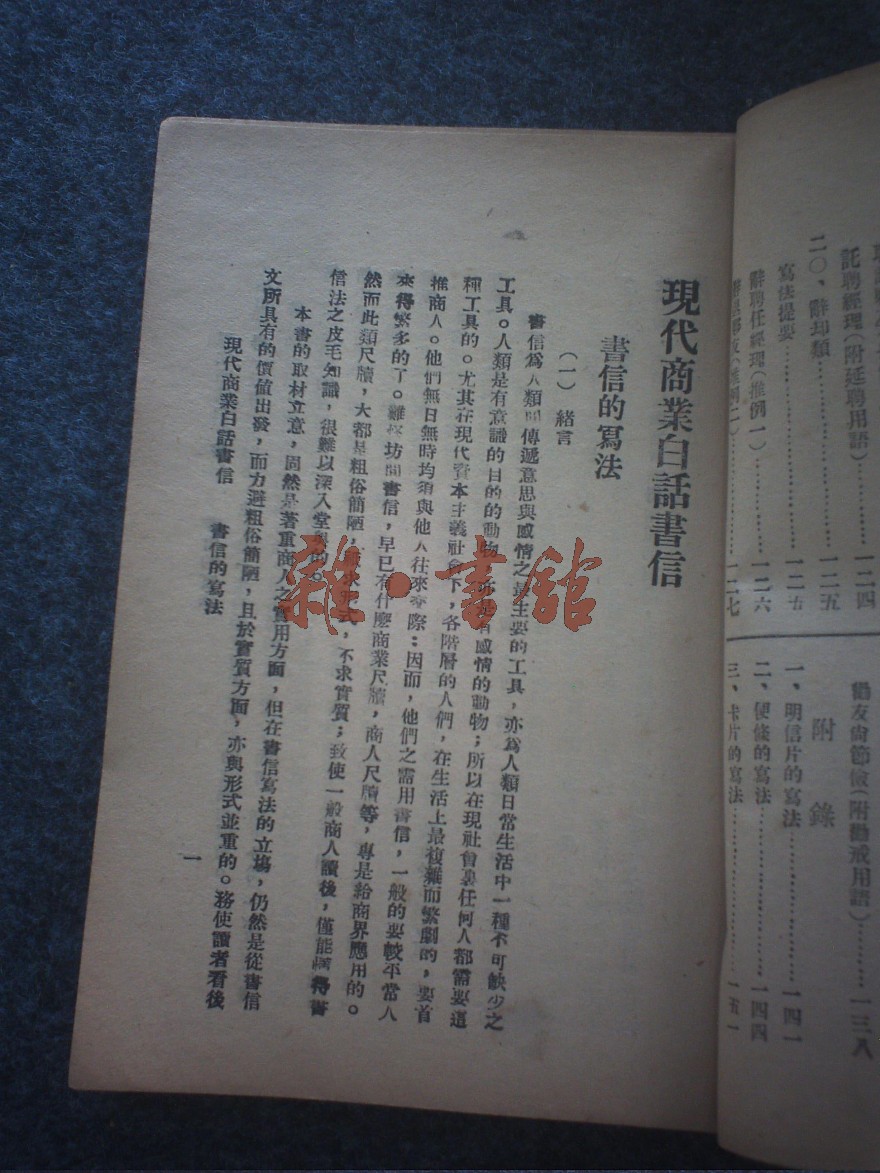 託聘經理(附延聘用語)………一二四
二〇、辭却類………一二五
寫法提要………一二五
辭聘任經理(推例一)………一二六
友(推例二)………一二七
勸友尚節儉(附勸戒用語)………一三八
附錄
一、明信片的寫法………一四一
二、便條的寫法………一四四
三、卡片的寫法………一五一
現代商業白話書信
書信的寫法
(一)緒言
書信爲人類間傳遞意思與感情之最主要的工具,亦爲人類日常生活中一種不可缺少之
工具。人類是有意識的目的的動物,亦是有感情的動物;所以在現社會裏任何人都需要這
種工具的。尤其在現代資本主義社會下,各階層的人們,在生活上最複雜而繁劇的,要首
推商人。他們無日無時均須與他人往來交際:因而,他們之需用書信,一般的要較平常人
來得繁多的了。雖然坊間書信,早已有什麼商業尺牘,商人尺牘等,專是給商界應用的。
然而此類尺牘,大都是粗俗簡陋,形式,不求實質;致使一般商人讀後,僅能懂得書
信法之皮毛知識,很難以深入堂奧的。
本書的取材立意,固然是著重商人之實用方面,但在書信寫法的立場,仍然是從書信
文所具有的價值出發,而力避粗俗簡陋,且於實質方面,亦與形式並重的。務使讀者看後
現代商業白話書信 書信的寫法
一
雜·書館